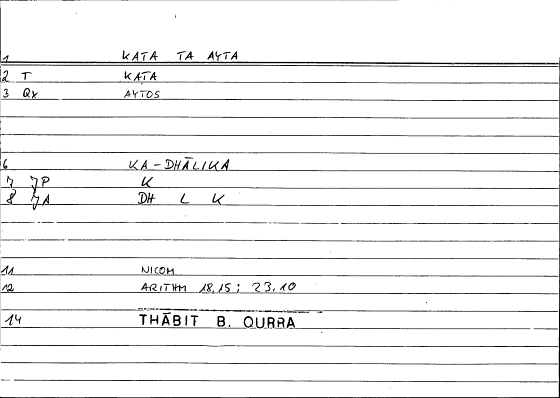 1 KATA TA AYTA
2 T KATA
3 Qx AYTOS
6 KA-DHĀLIKA
7 JP K
8 JA DH L K
11 NICOM
12 ARITHM 18,15; 23,10
14 THĀBIT B. QURRA